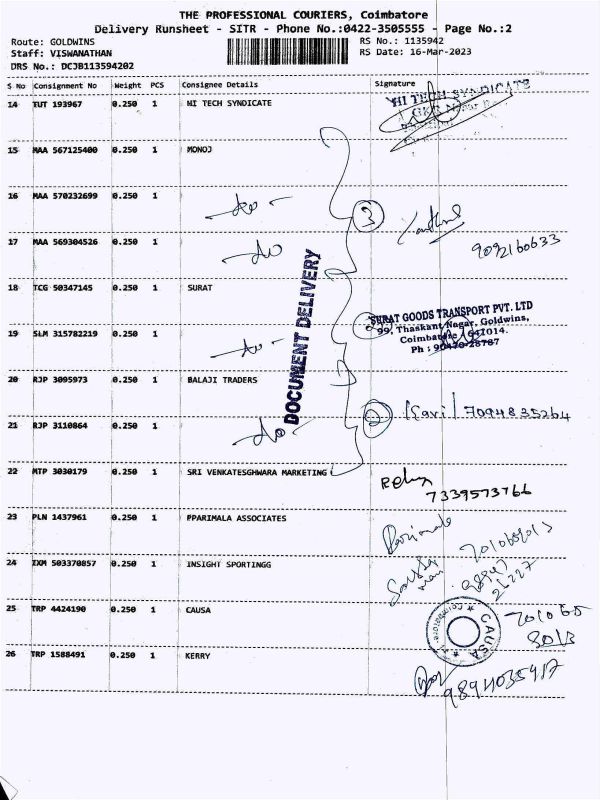 THE PROFESSIONAL COURIERS, Coimbatore
Delivery Runsheet - SITR - Phone No.:0422-3505555 - Page No.:2
Route: GOLDWINS
RS No.: 1135942
Staff: VISWANATHAN
RS Date: 16-Mar-2023
DRS No.: DCJB113594202
S No Consignment No Weight PCS Consignee Details Signature
14 TUT 193967 0.250 1 HI TECH SYNDICATE
HI TECH SYNDICATE
15 MAA 567125400 0.250 1 MONOJ
16 MAA 570232699 0.250 1 -do-
3
17 MAA 569304526 0.250 1 -do
9092160633
18 TCG 50347145 0.250 1 SURAT
DOCUMENT DELIVERY
SURAT GOODS TRANSPORT PVT. LTD
99, Thaskant Nagar, Goldwins,
Coimbatore 641014.
Ph : 90470-28787
19 SLM 315782219 0.250 1 -do-
20 RJP 3095973 0.250 1 BALAJI TRADERS
21 RJP 3110864 0.250 1 -do-
2 Gavi 7094835264
22 MTP 3030179 0.250 1 SRI VENKATESGHWARA MARKETING
7339573766
23 PLN 1437961 0.250 1 PPARIMALA ASSOCIATES
Parimala
24 IXM 503370857 0.250 1 INSIGHT SPORTINGG
25 TRP 4424190 0.250 1 CAUSA
CAUSA
Coimbatore
26 TRP 1588491 0.250 1 KERRY
9894035917